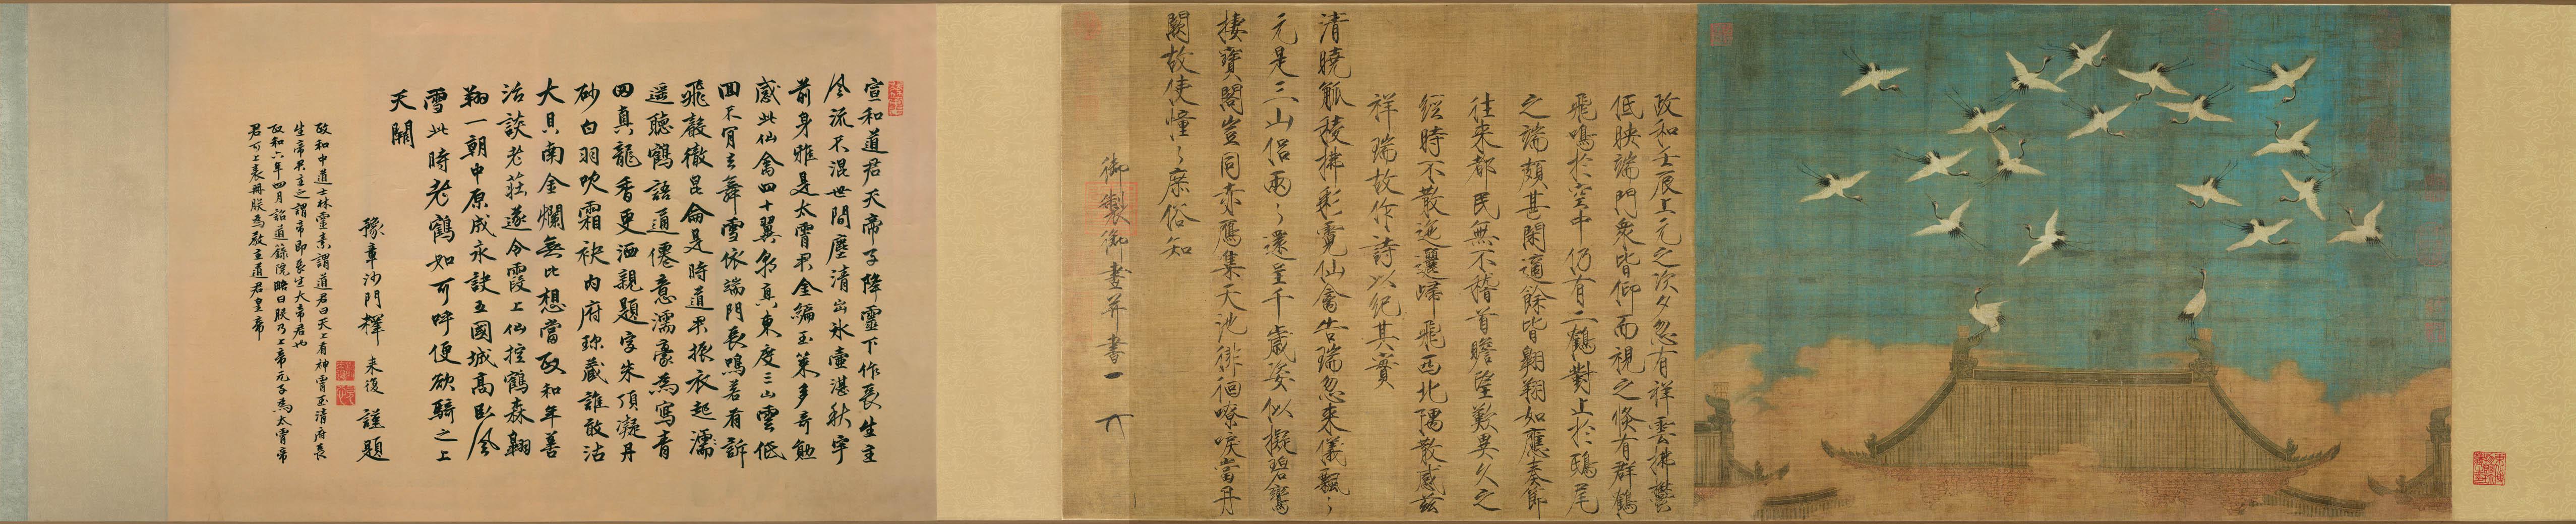 政和壬辰上元之次夕忽有祥雲拂鬱
低映端門衆皆仰而視之倏有群鶴
飛鳴於空中仍有二鶴對止於鴟尾
之端頗甚閑適餘皆翱翔如應奏節
往來都民無不稽首瞻望歎異久之
經時不散迤邐歸飛西北隅散感茲
祥瑞故作詩以紀其實
清曉觚稜拂彩霓仙禽告瑞忽來儀飄々
元是三山侶兩々還呈千歲姿似擬碧鸞
棲寶閣豈同赤鴈集天池徘徊嘹唳當丹
闕故使憧々庶俗知
御製御畫并書
宣和道君天帝子降靈下作長生主
風流不混世間塵清出冰壺湛秋宇
前身雅是太霄君金編玉策多奇勳
感此仙禽四十翼朝真東度三山雲低
回不肯去舞雪依端門長鳴若有訴
飛聲徹昆侖是時道君振衣起濡
遥聽鶴語通僊意濡豪為寫青
田真龍香更洒親題字朱頂凝丹
砂白羽吹霜袂内府珍藏誰敢沽
大貝南金爛無比想當政和年善
治談老莊遂令霞上仙控鶴森翱
翔一朝中原成永訣五國城高臥風
雪此時老鶴如可呼便欲騎之上
天闕
豫章沙門釋 來復 謹題
政和中道士林靈素謂道君曰天上有神霄玉清府長
生帝君主之謂帝即長生大帝君也
政和六年四月詔道籙院略曰朕乃上帝元子為太霄帝
君可上表冊朕為教主道君皇帝